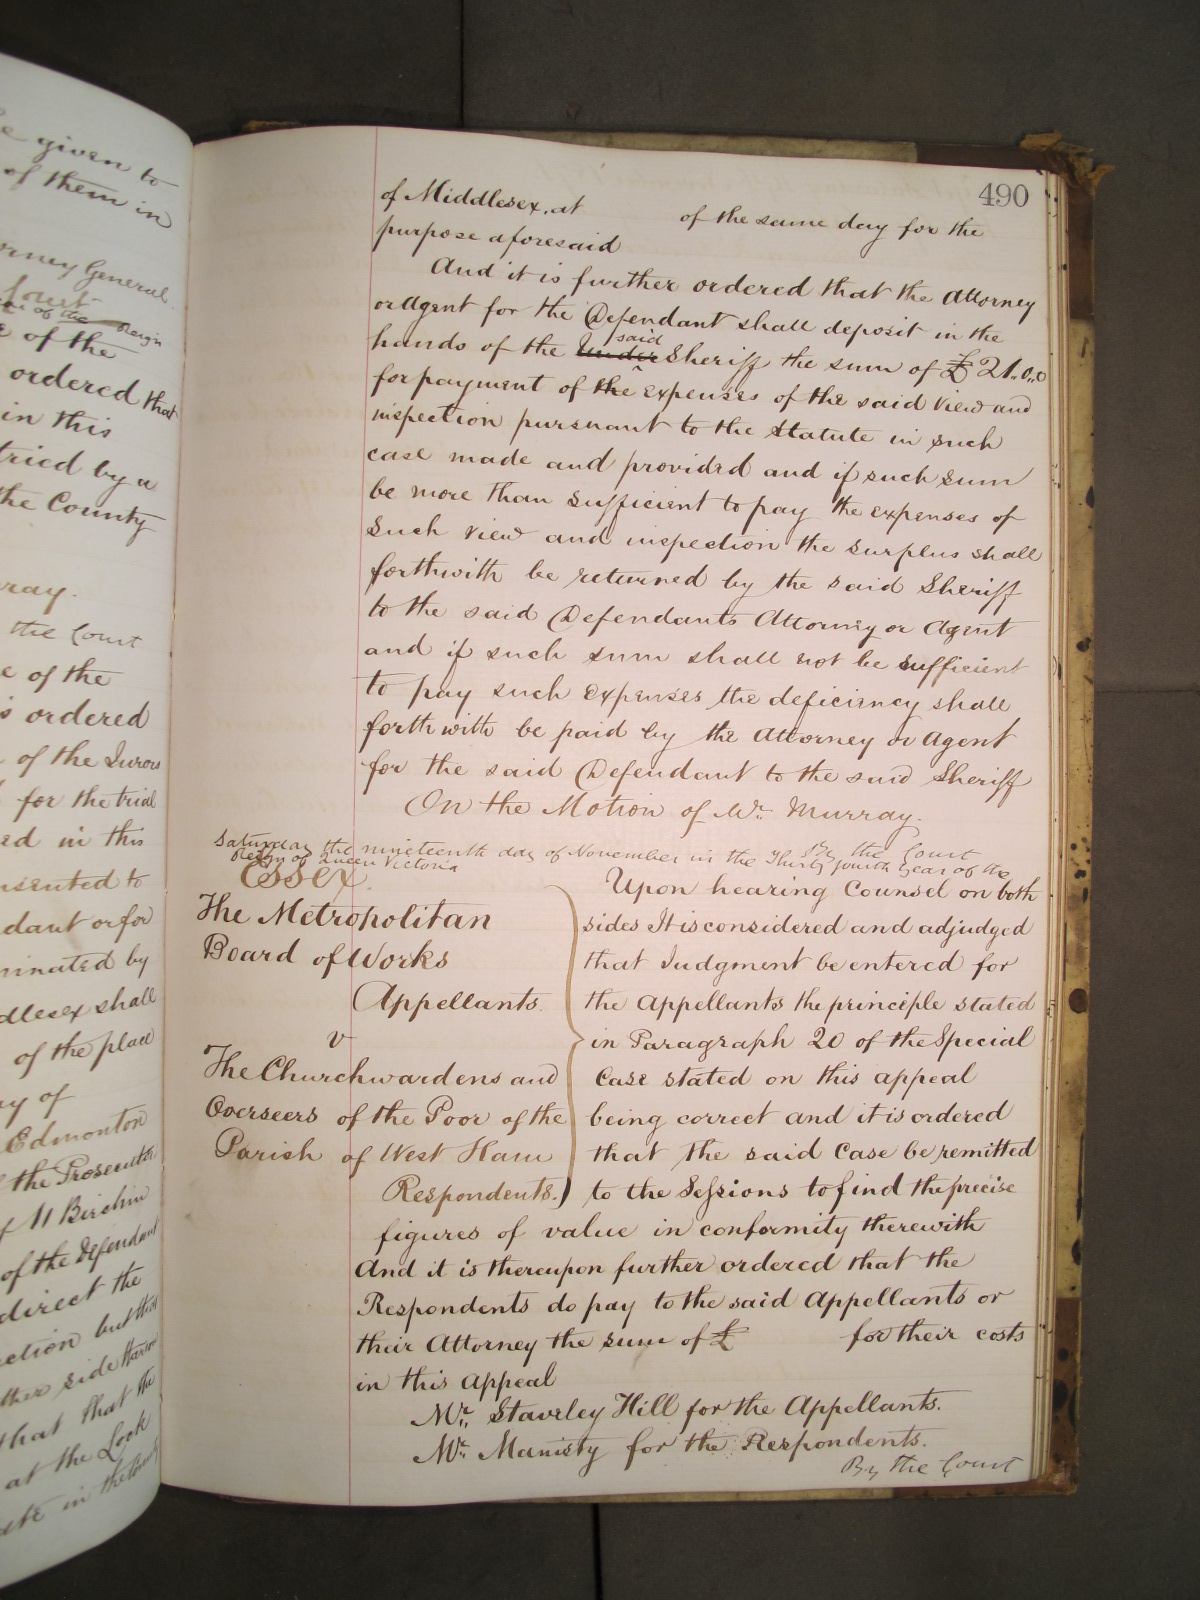 e given to
of them in
orney General.
Court
of the Reign
e of the
ordered that
in this
tried by a
the County
ray.
the Court
e of the
is ordered
of the Jurors
for the trial
ed in this
nsented to
dant or for
minated by
dlesex shall
of the place
ay of
Edmonton
the Prosecutor
M Birchin
of the Defendant
direct the
ection but this
ther side
that that the
at the Lock
ate in the
490
of Middlesex, at of the same day for the
purpose aforesaid
And it is further ordered that the Attorney
or Agent for the Defendant shall deposit in the
said
hands of the Under Sheriff the sum of £21..0..0
for payment of the expenses of the said View and
inspection pursuant to the Statute in such
case made and provided and if such sum
be more than sufficient to pay the expenses of
such View and inspection the surplus shall
forthwith be returned by the said Sheriff
to the said Defendants Attorney or Agent
and if such sum shall not be sufficient
to pay such expenses the deficiency shall
forthwith be paid by the Attorney or Agent
for the said Defendant to the said Sheriff
On the Motion of Mr. Murray.
By the Court
Saturday the nineteenth day of November in the Thirty fourth Year of the
Reign of Queen Victoria
Essex.
The Metropolitan
Board of Works
Appellants
v
The Churchwardens and
Overseers of the Poor of the
Parish of West Ham
Respondents.
Upon hearing Counsel on both
sides It is considered and adjudged
that Judgment be entered for
the Appellants the principle stated
in Paragraph 20 of the Special
Case stated on this appeal
being correct and it is ordered
that the said Case be remitted
to the Sessions to find the precise
figures of value in conformity therewith
And it is thereupon further ordered that the
Respondents do pay to the said Appellants or
their Attorney the sum of £ for their costs
in this Appeal
Mr. Staveley Hill for the Appellants.
Mr. Manisty for the Respondents.
By the Court